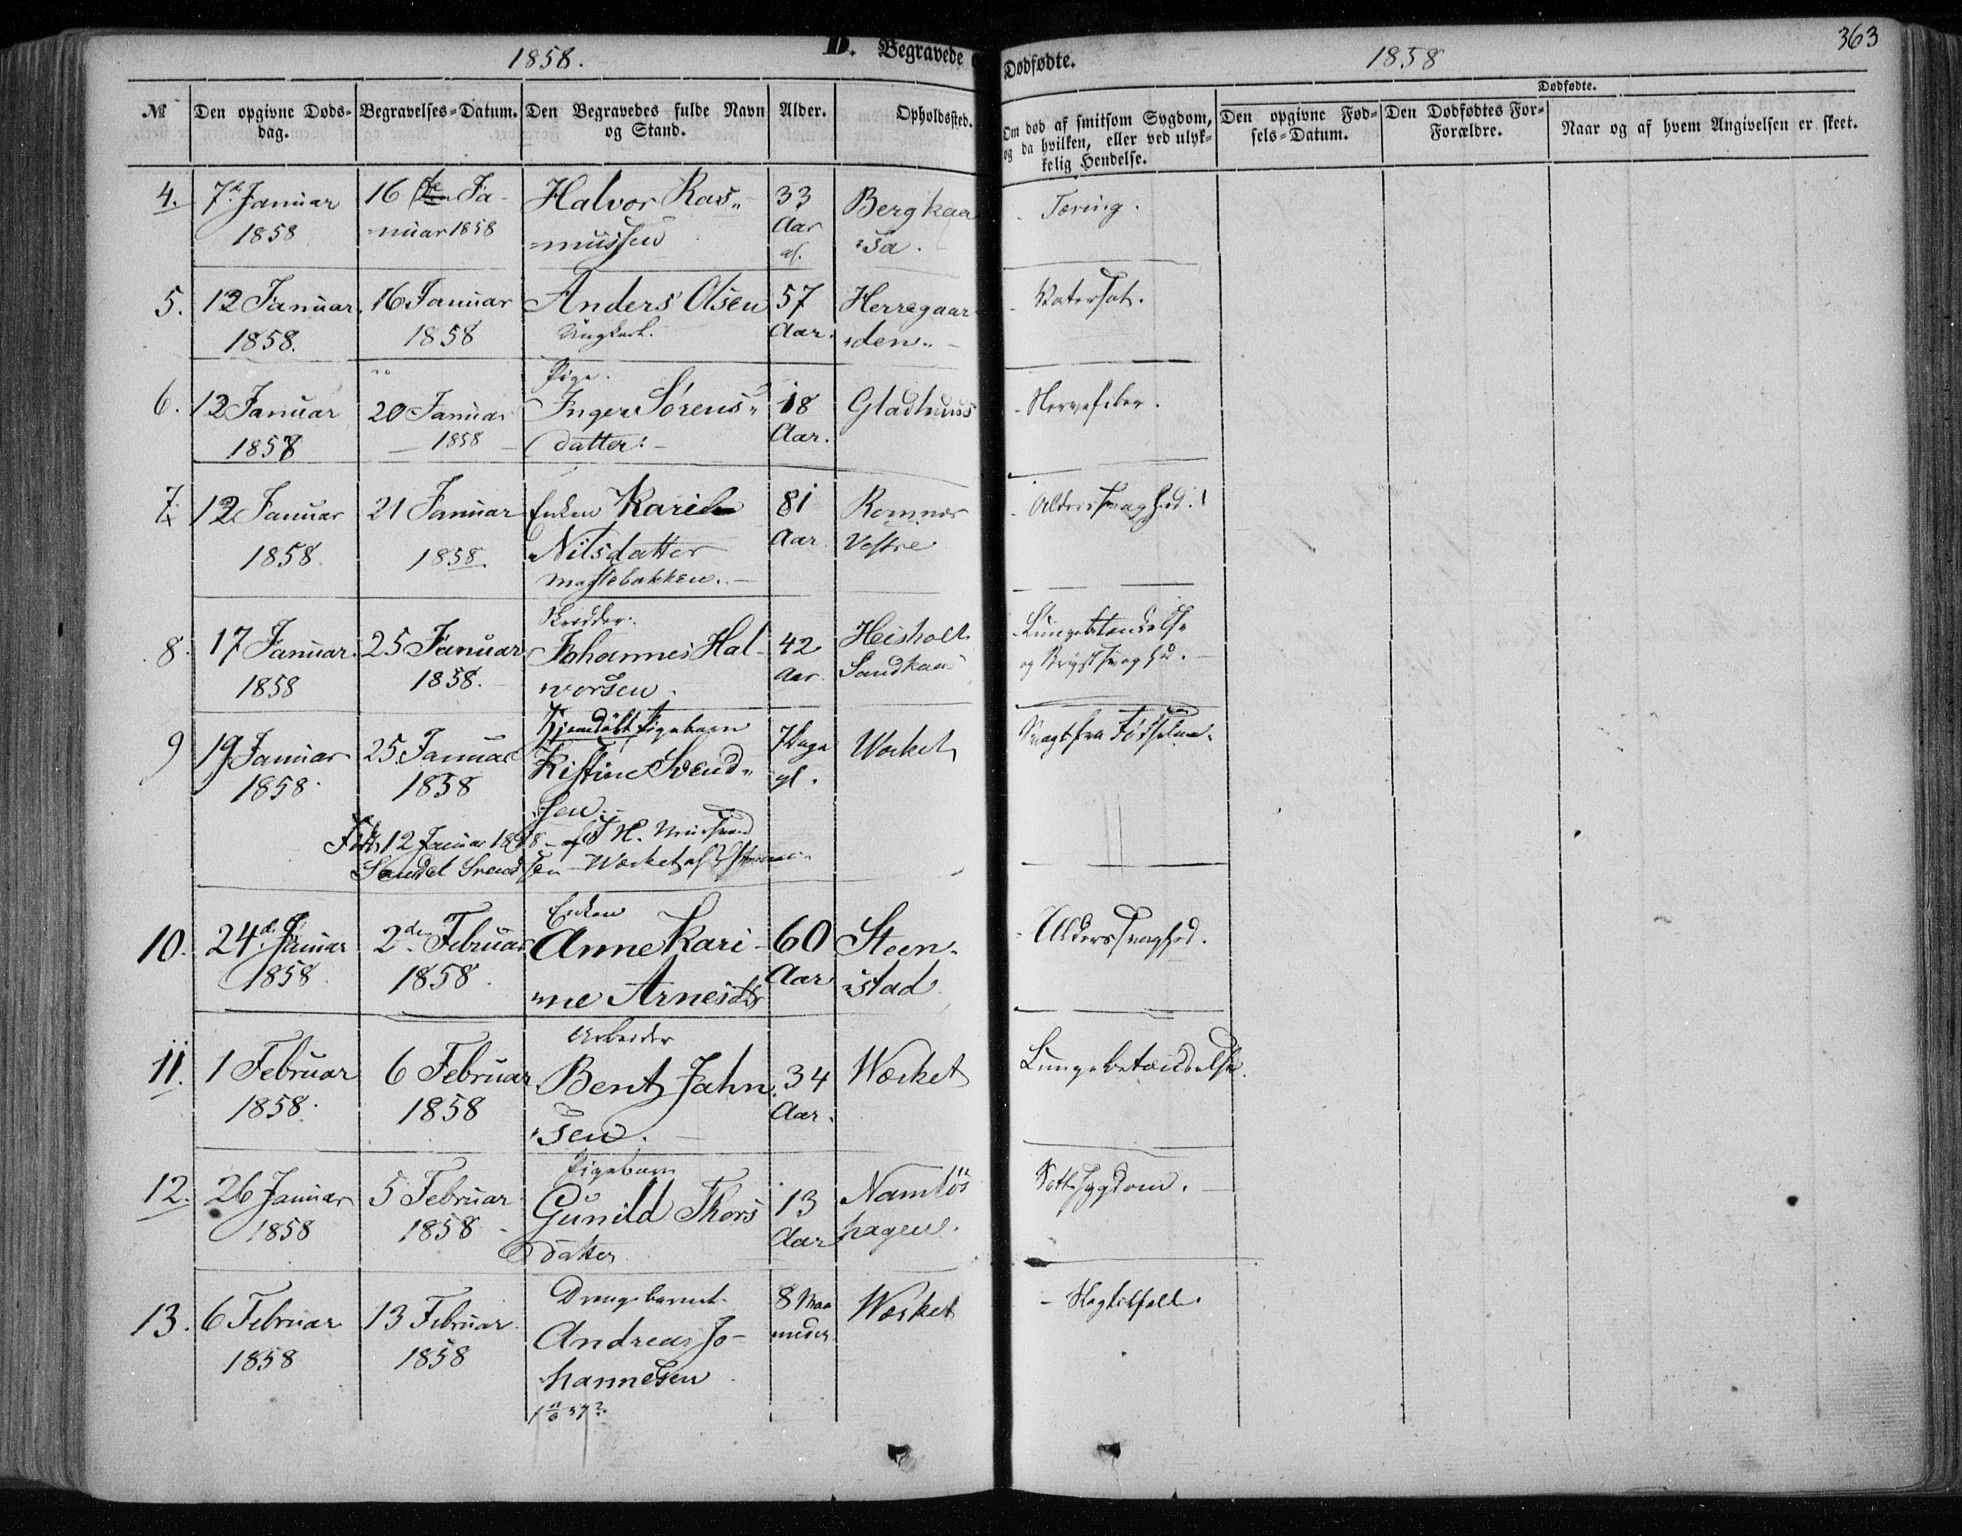 1858.
D. Begravede
Dødfødte.
1858
363
№
Den opgivne Døds-
dag.
Begravelses-Datum.
Den Begravedes fulde Navn
og Stand.
Alder.
Opholdssted.
Om død af smitsom Sygdom,
og da hvilken, eller ved ulyk-
kelig Hendelse.
Dødfødte.
Den opgivne Fød-
sels-Datum.
Den Dødfødtes For-
ældre.
Naar og af hvem Angivelsen er skeet.
4.
7d. Januar
1858
16 Ja-
nuar 1858
Halvor Ras-
mussen
33
Aar
Bergkaa
sa.
Tæring.
5.
12 Januar
1858.
16 Januar
1858
Anders Olsen
Ungkarl.
57
Aar.
Herregaar
den
6.
12 Januar
1858
20 Januar
1858
Pige.
Inger Sørens-
datter.
18
Aar.
Gladhuus
Nervefeber.
7.
12 Januar
1858.
21 Januar
1858.
Enken Kari
Nilsdatter
81
Aar
Romnes
Vestre
Alderssvaghed.
8.
17 Januar
1858
25 Januar
1858.
Skrædder.
Johannes Hal-
vorsen.
42
Aar
Heisholt
Sandkaas
Lungebetændelse
og Brystsvaghed.
9
19 Januar
1858.
25 Januar
1858
Hjemdøbt Pigebarn
Kistine Svend-
sen.
7 Dage
gl.
Værket
Svag fra Fødselen.
Født 12 Januar 1858
Svend
10.
24d. Januar
1858
2den Februar
1858
Enken
Anne Kari-
ne Arnesdtr
60
Aar
Steen-
stad
Alderssvaghed.
11.
1 Februar
1858.
6 Februar
1858
Arbeider
Bent Jahn
sen.
34
Aar.
Værket
Lungebetændelse.
12.
26 Januar
1858
5 Februar
1858
Pigebarn
Gunild Thors
datter
13
Aar
Namløs
hagen.
13.
6 Februar
1858
13 Februar
1858
Drengebarnet
Andreas Jo-
hannesen
8 Maa
neder
Værket